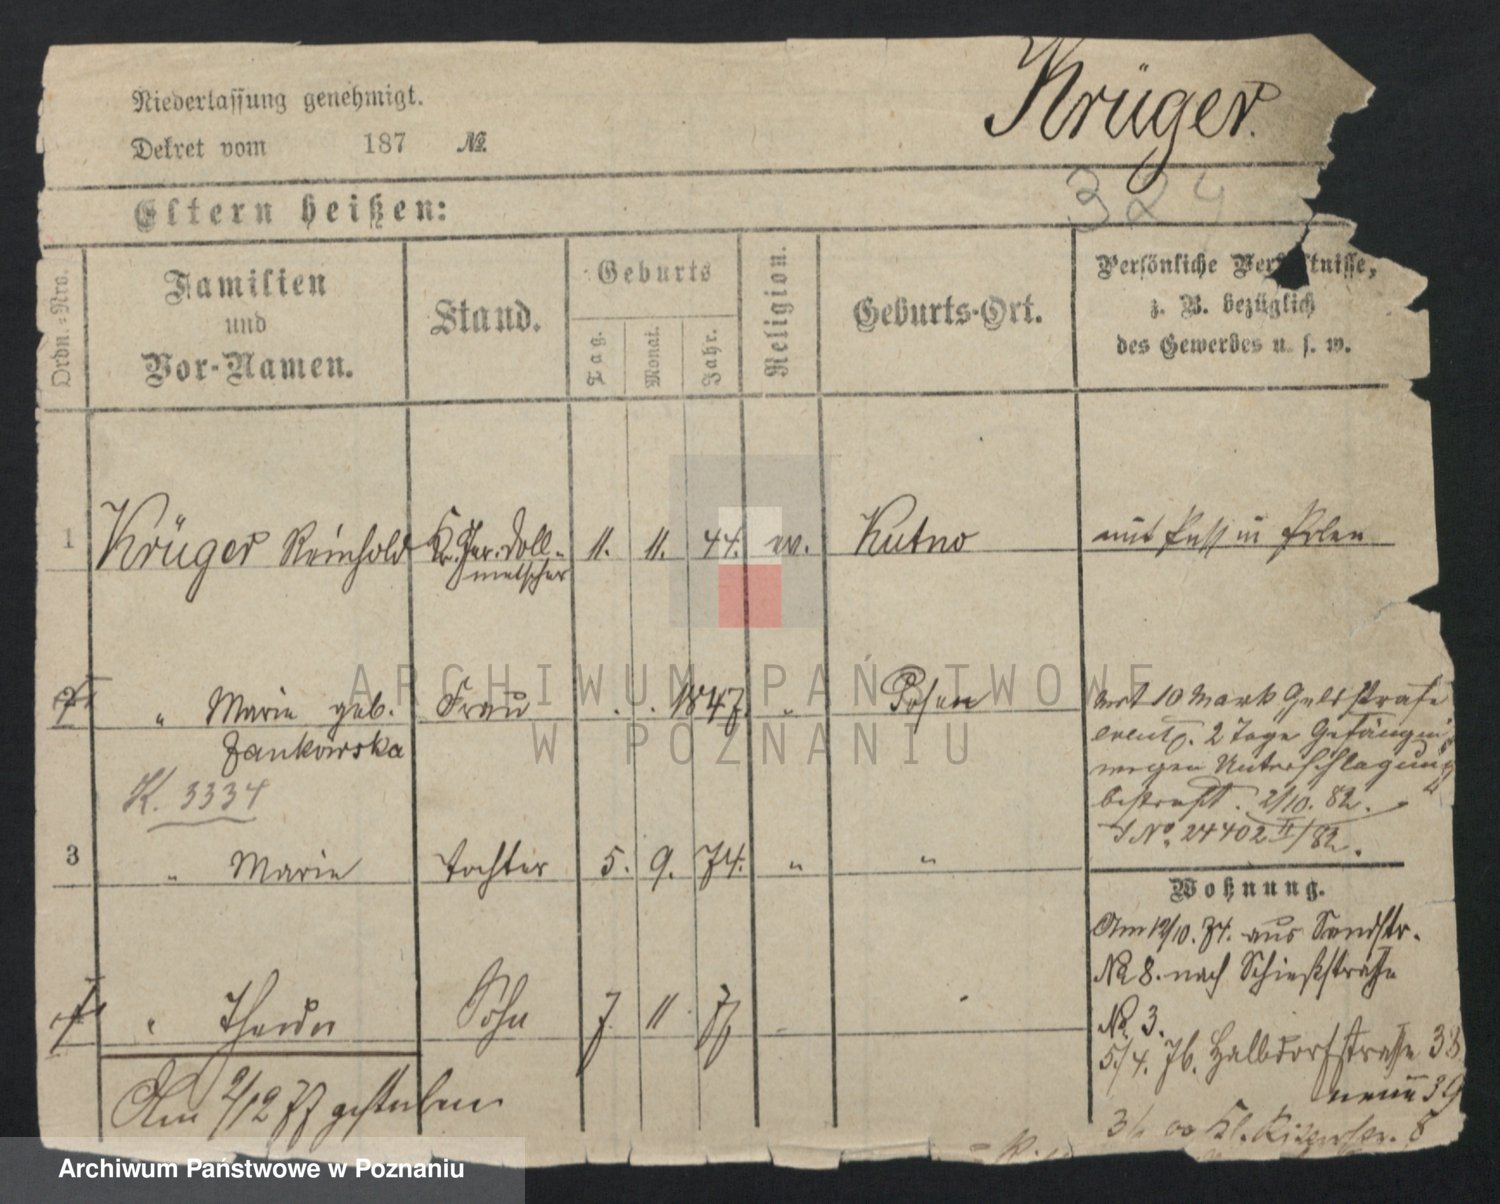 Niederlassung genehmigt.
Krüger.
Dekret vom 187 №
324
Eltern heißen:
Ordn.-Nro.
Familien
und
Vor-Namen.
Stand.
Geburts
Tag.
Monat.
Jahr.
Religion.
Geburts-Ort.
Persönliche Verhältnisse,
z. B. bezüglich
des Gewerbes u. s. w.
1 Krüger Reinhold Kr. Ger. Doll-
metscher
11. 11. 44. ev. Kutno mit Pass in Polen
2 " Marie geb. Frau . . 1847. " Posen
Zankowska
K. 3334
mit 10 Mark Geldstrafe
event. 2 Tage Gefängniß
wegen Unterschlagung
bestraft. 2/10. 82.
J No. 24402 II/82.
3 " Marie Tochter 5. 9. 74. " "
Wohnung.
Am 12/10. 74. aus Sandstr.
No 8. nach Schießstraße
No. 3.
" Sohn 7 11 77
5/4. 76. Halbdorfstraße 38
neue 39
Am 2/12 77 gestorben
8
ARCHIWUM PAŃSTWOWE
W POZNANIU
Archiwum Państwowe w Poznaniu